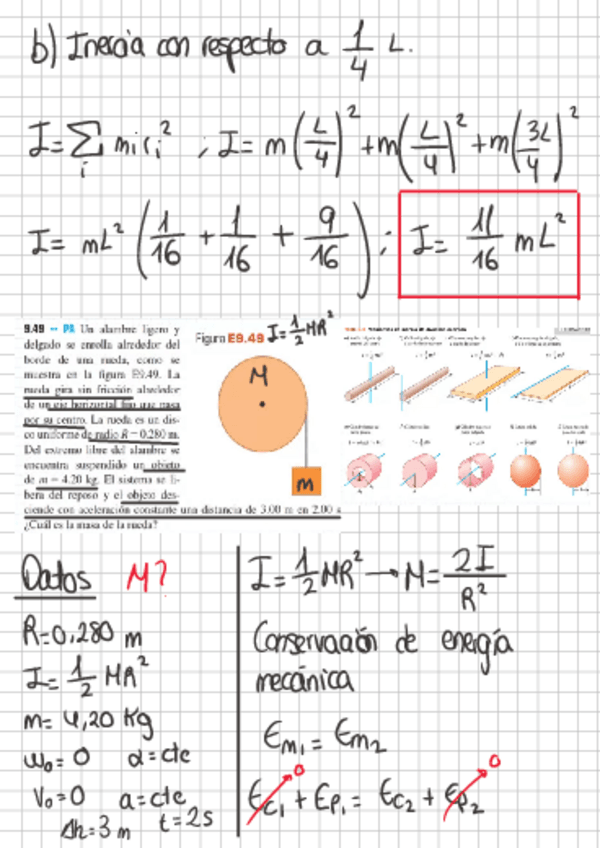 b) Inercia con respecto a 1/4 L.
I = Σ_i m_i r_i² ; I = m(L/4)² + m(L/4)² + m(3L/4)²
I = mL² (1/16 + 1/16 + 9/16) ; I = 11/16 mL²
9.49 •• PR Un alambre ligero y
delgado se enrolla alrededor del
borde de una rueda, como se
muestra en la figura E9.49. La
rueda gira sin fricción alrededor
de un eje horizontal fijo que pasa
por su centro. La rueda es un dis-
co uniforme de radio R = 0.280 m.
Del extremo libre del alambre se
encuentra suspendido un objeto
de m = 4.20 kg. El sistema se li-
bera del reposo y el objeto des-
ciende con aceleración constante una distancia de 3.00 m en 2.00 s
¿Cuál es la masa de la rueda?
Figura E9.49 I = 1/2 MR²
M
m
Datos M?
R = 0,280 m
I = 1/2 MR²
m = 4,20 Kg
ω₀ = 0 α = cte
V₀ = 0 a = cte
Δh = 3 m t = 2s
I = 1/2 MR² → M = 2I/R²
Conservación de energía
mecánica
Em₁ = Em₂
Ec₁ 0 + Ep₁ = Ec₂ + Ep₂ 0